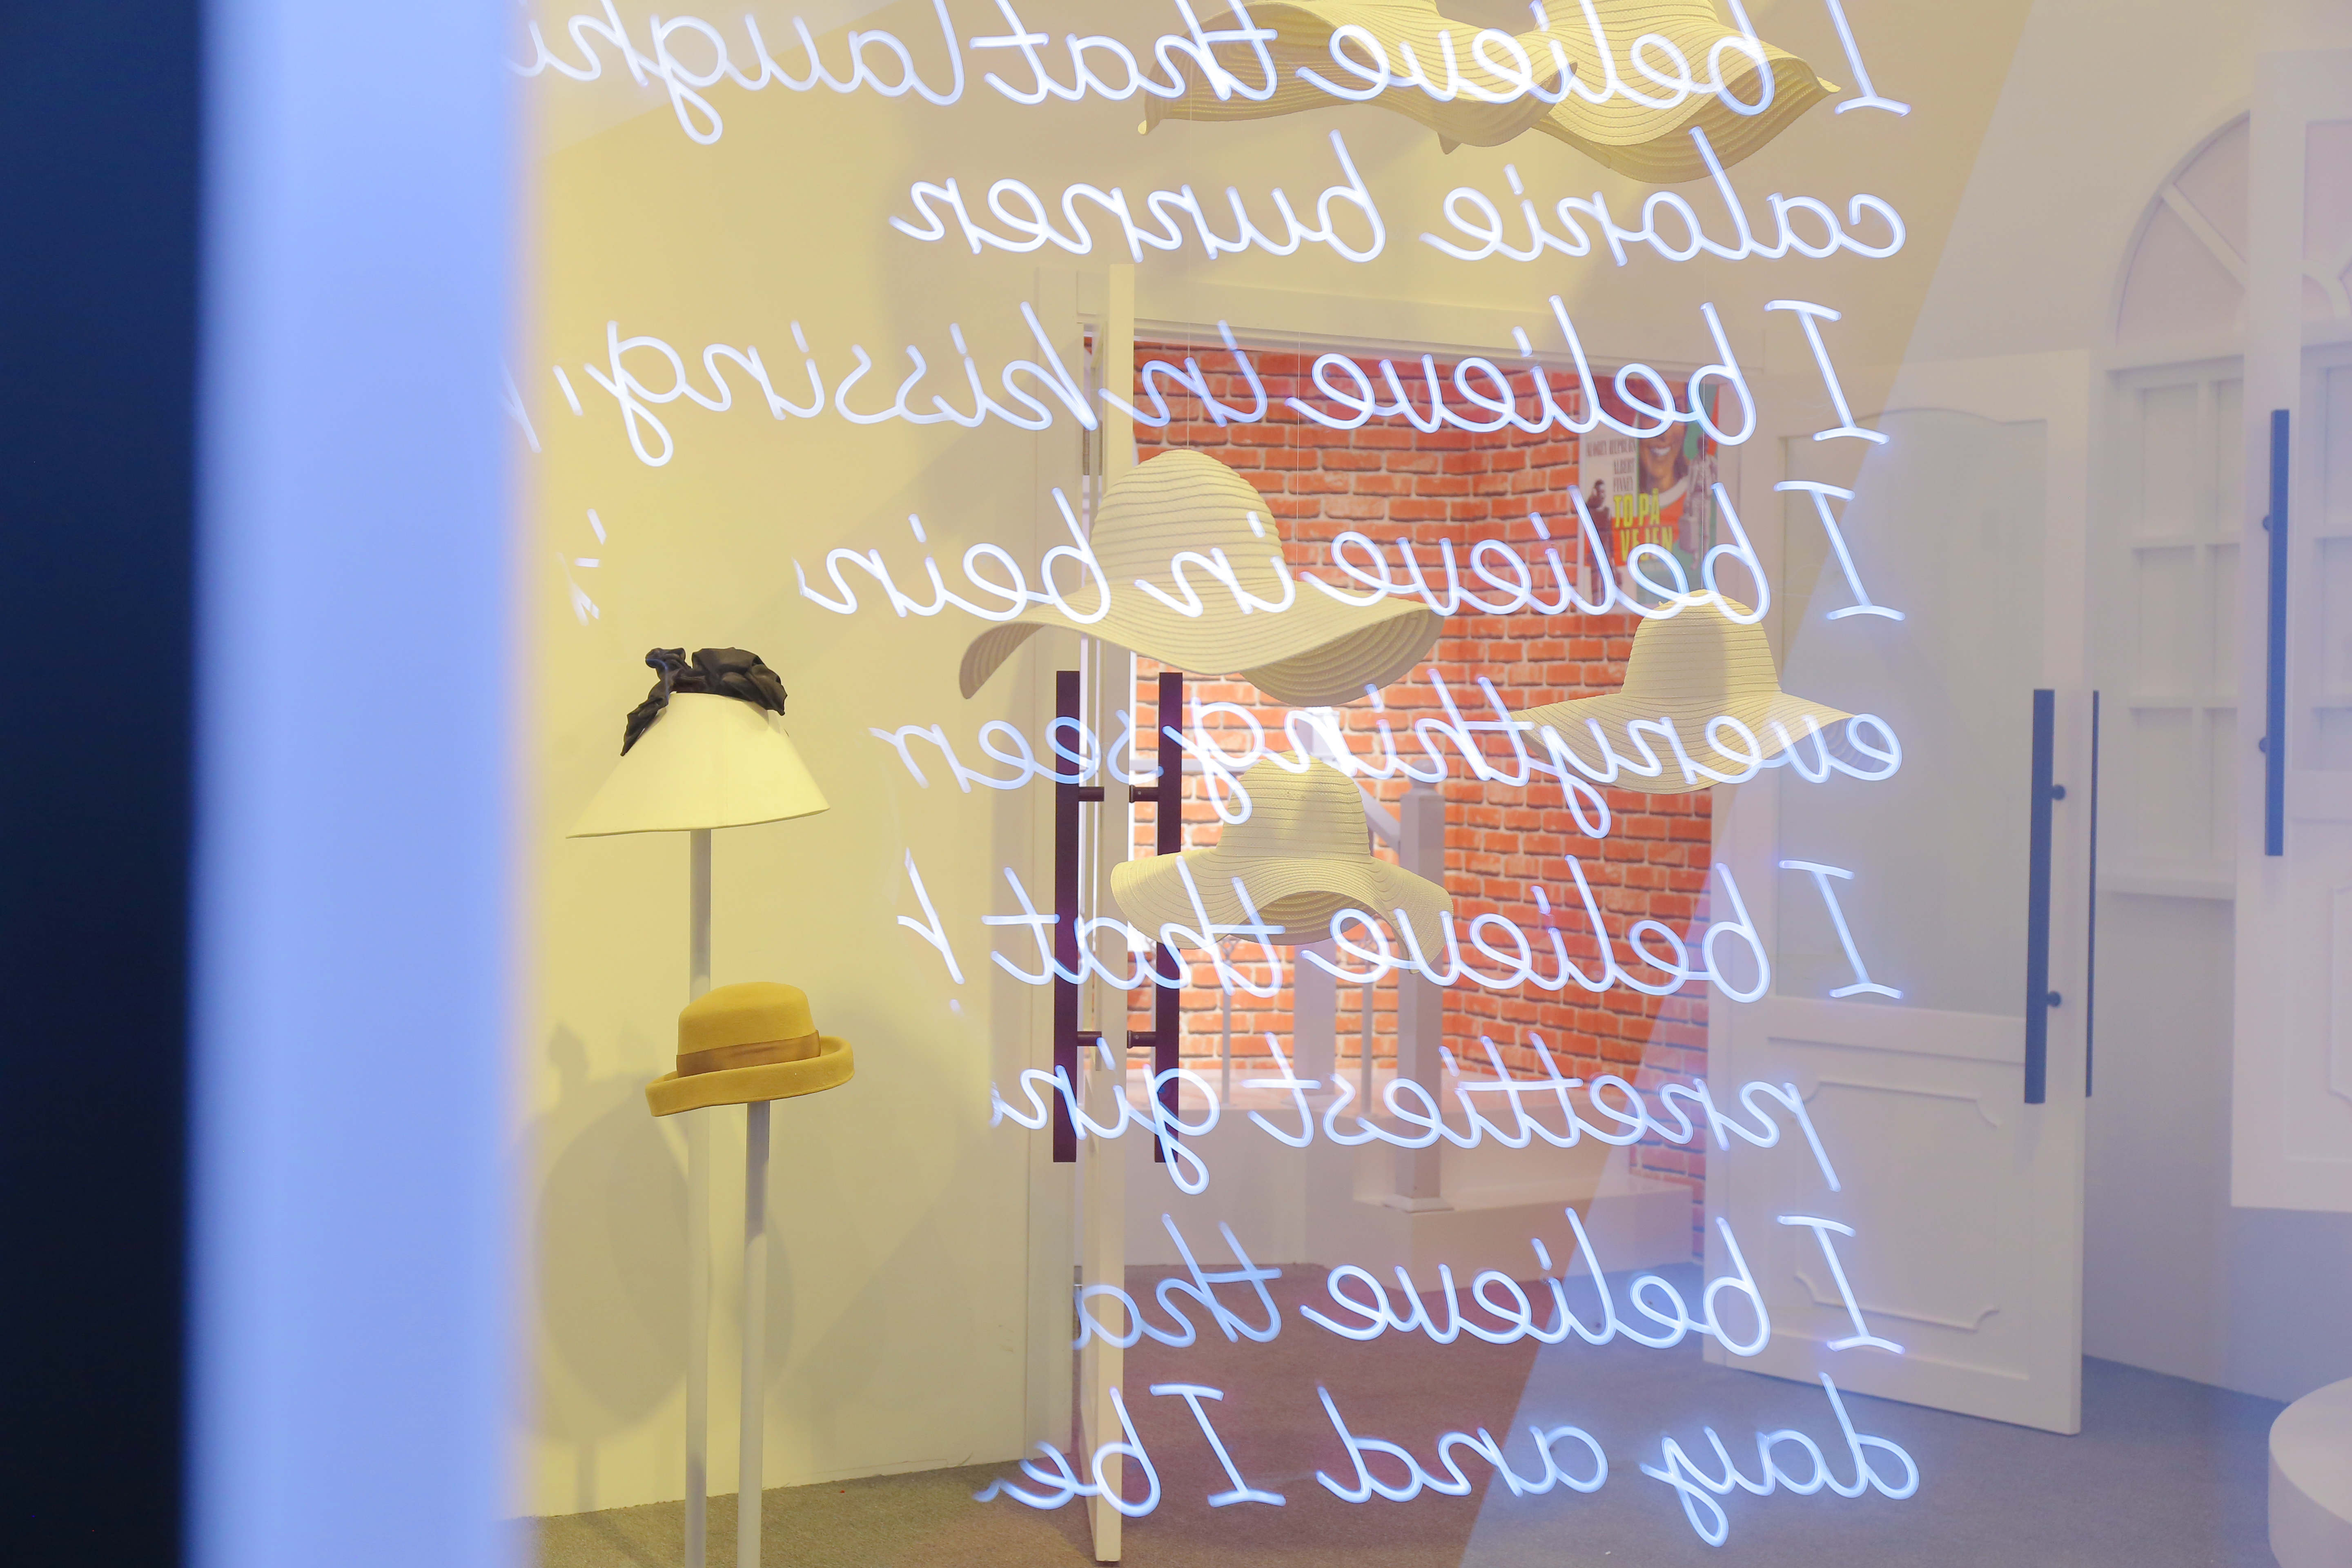 I believe that laughi
calorie burner
I believe in kissing,
I believe in bein
everything seem
I believe that h
prettiest girl
I believe tha
day and I be
AUDREY HEPBURN
ALBERT
FINNEY
TO PÅ
VEJEN